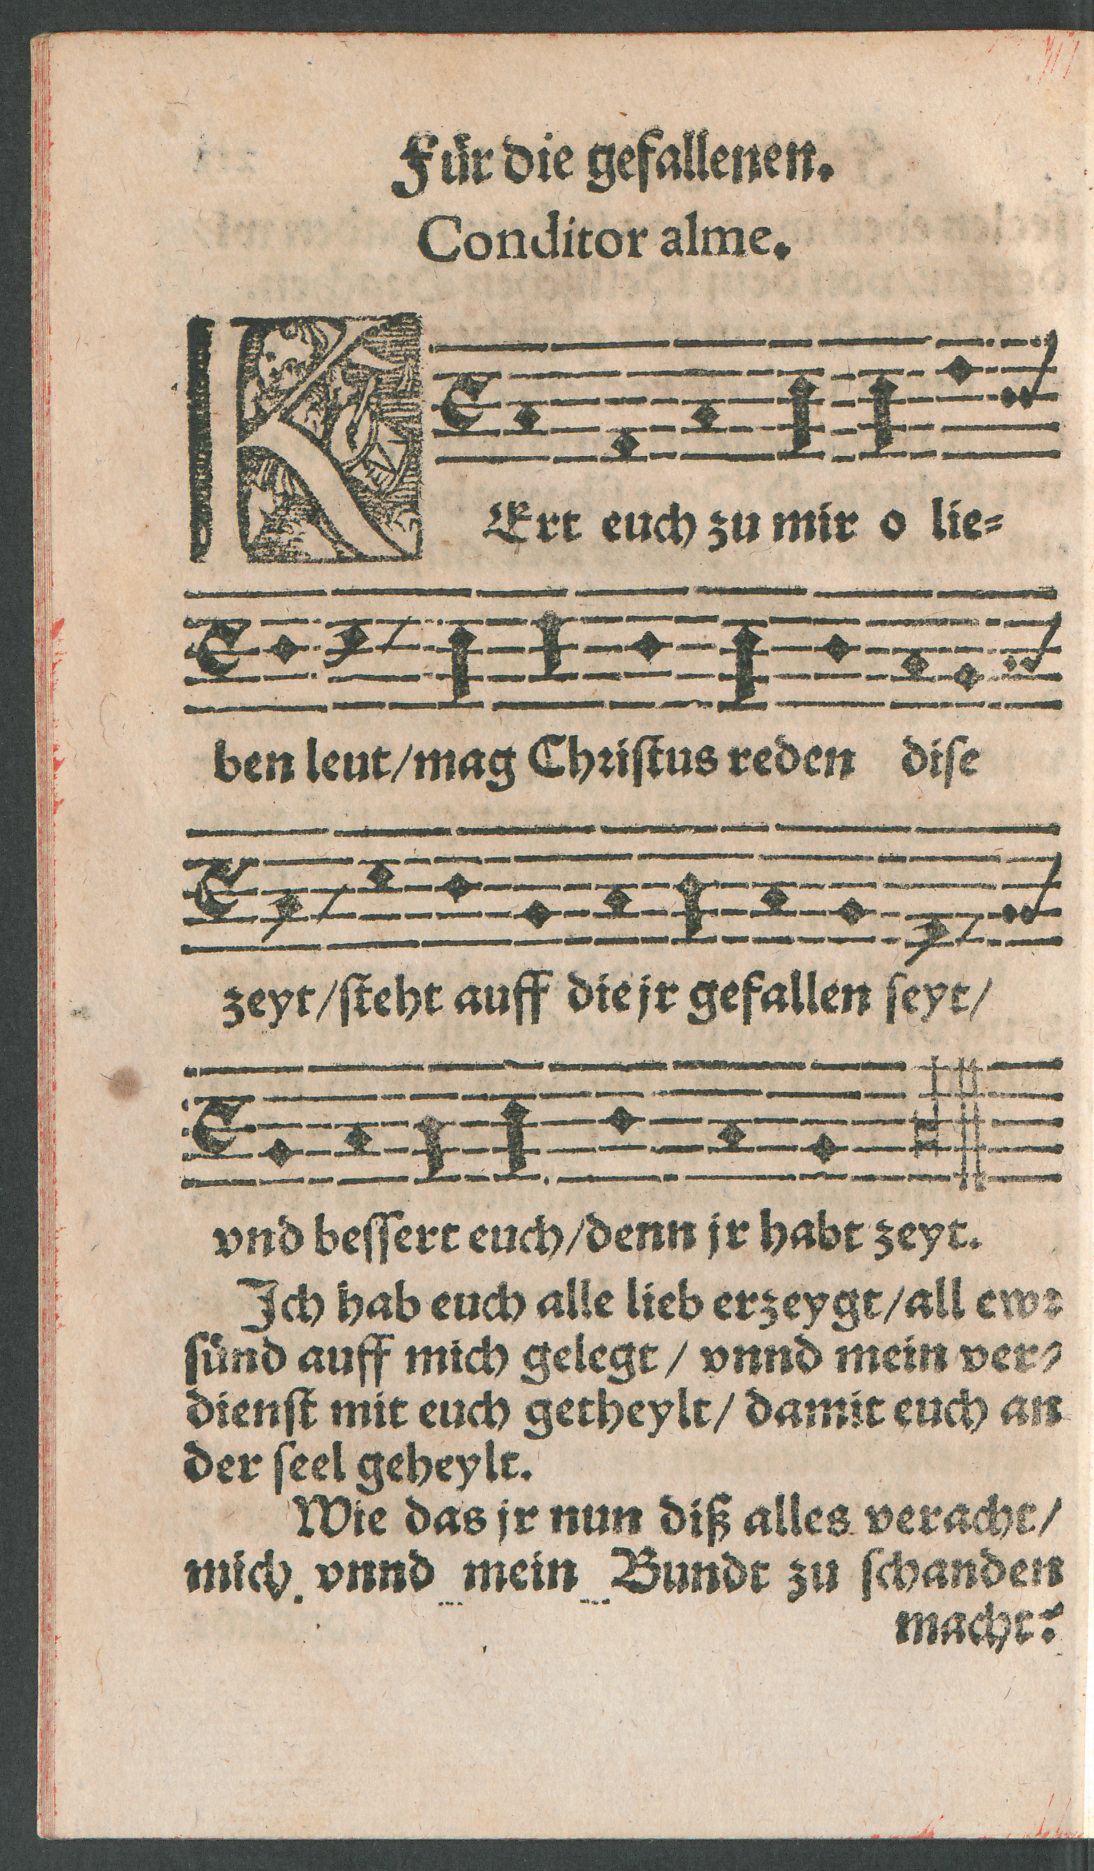 Für die gefallenen.
Conditor alme.
KErt euch zu mir o lie⸗
ben leut/mag Christus reden dise
zeyt/steht auff die jr gefallen seyt/
vnd bessert euch/denn jr habt zeyt.
Ich hab euch alle lieb erzeygt/all ewr
sünd auff mich gelegt/ vnnd mein ver⸗
dienst mit euch getheylt/ damit euch an
der seel geheylt.
Wie das jr nun diß alles veracht/
mich vnnd mein Bundt zu schanden
macht: